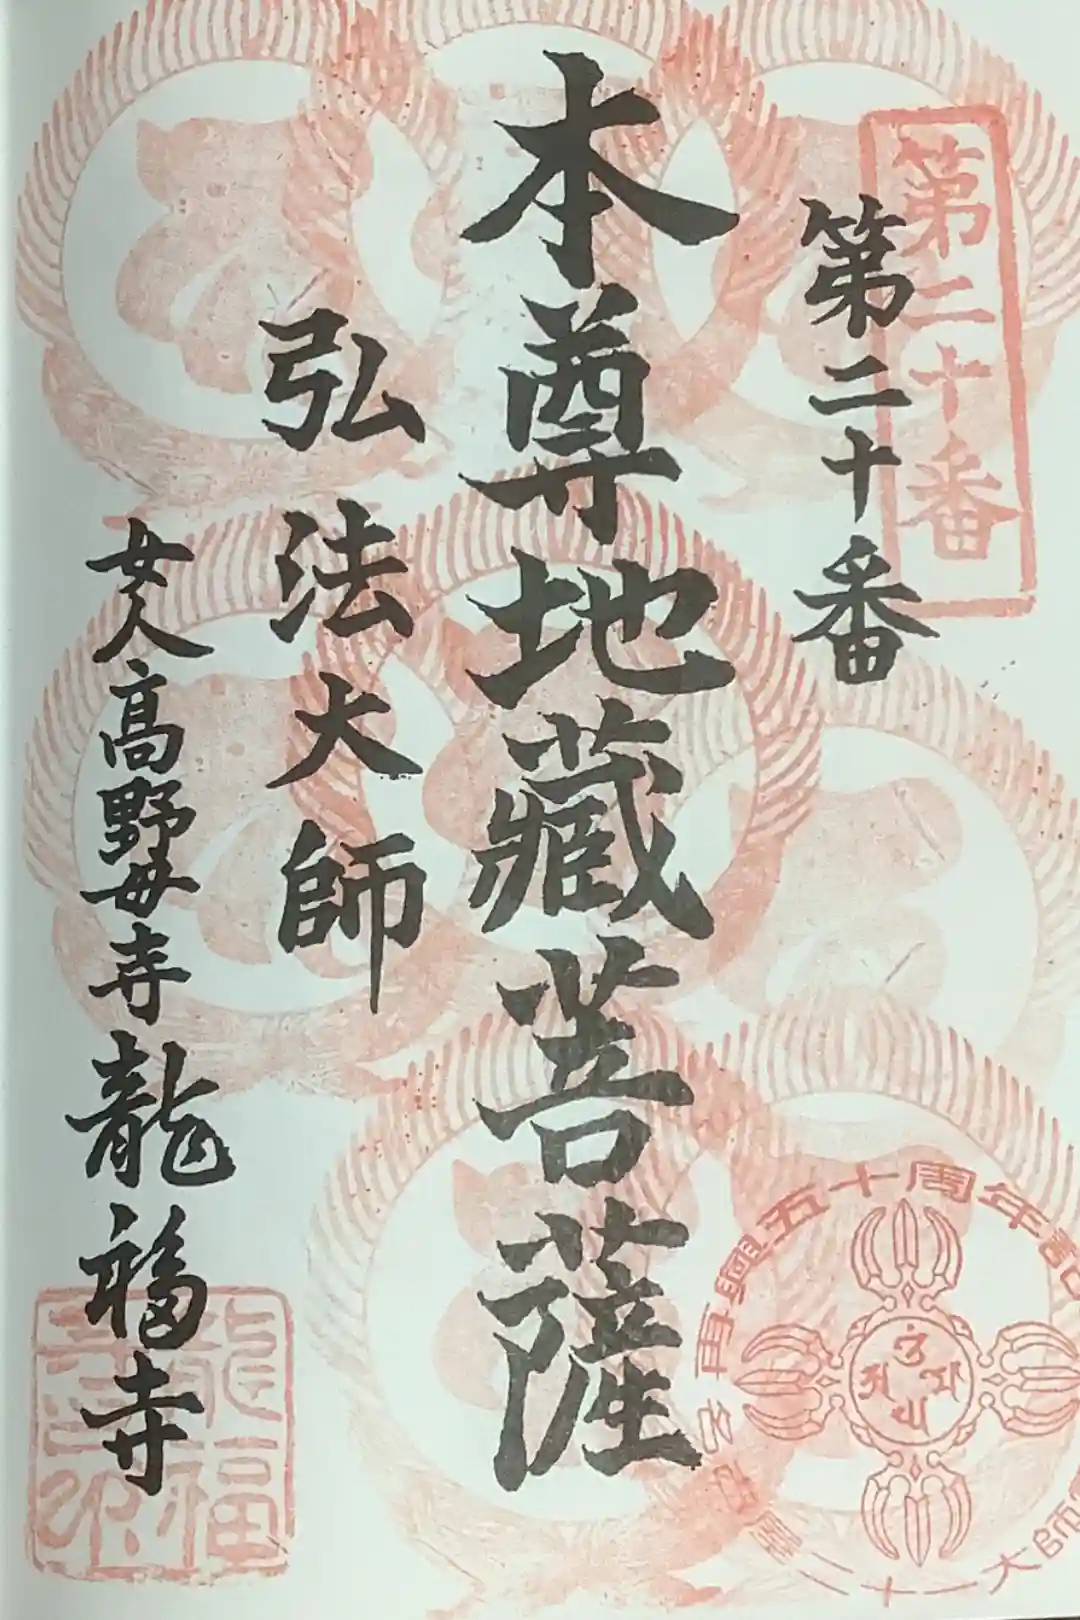 第二十番
第二十番
本尊地藏菩薩
弘法大師
女人高野毎寺龍福寺
龍福
再興五十周年記
二十一大師